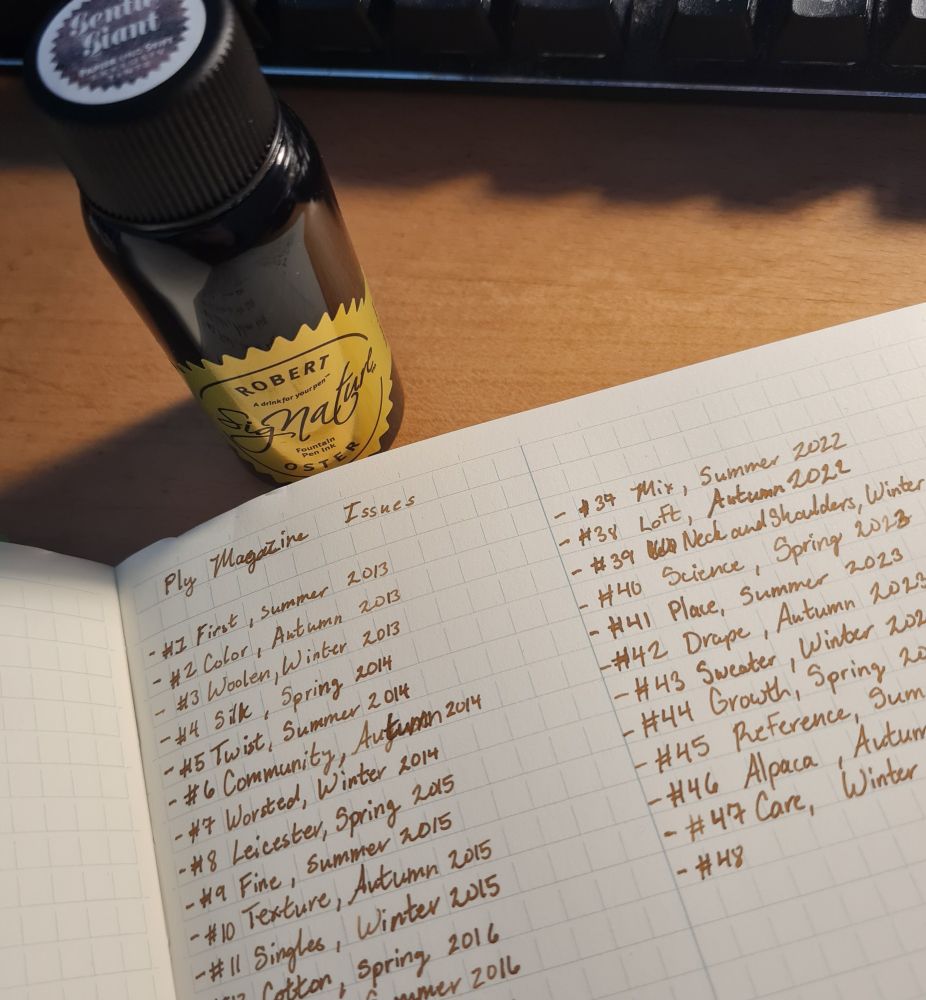 Gentle
Giant
ROBERT
A drink for your pen™
Signature
Fountain
Pen Ink
OSTER
Ply Magazine Issues
- #1 First, Summer 2013
- #2 Color, Autumn 2013
- #3 Woolen, Winter 2013
- #4 Silk, Spring 2014
- #5 Twist, Summer 2014
- #6 Community, Autumn 2014
- #7 Worsted, Winter 2014
- #8 Leicester, Spring 2015
- #9 Fine, Summer 2015
- #10 Texture, Autumn 2015
- #11 Singles, Winter 2015
Cotton, Spring 2016
Summer 2016
- #37 Mix, Summer 2022
- #38 Loft, Autumn 2022
- #39 Neck and Shoulders, Winter
- #40 Science, Spring 2023
- #41 Place, Summer 2023
- #42 Drape, Autumn 2023
- #43 Sweater, Winter 202
- #44 Growth, Spring 20
- #45 Reference, Sum
- #46 Alpaca, Autum
- #47 Care, Winter
- #48